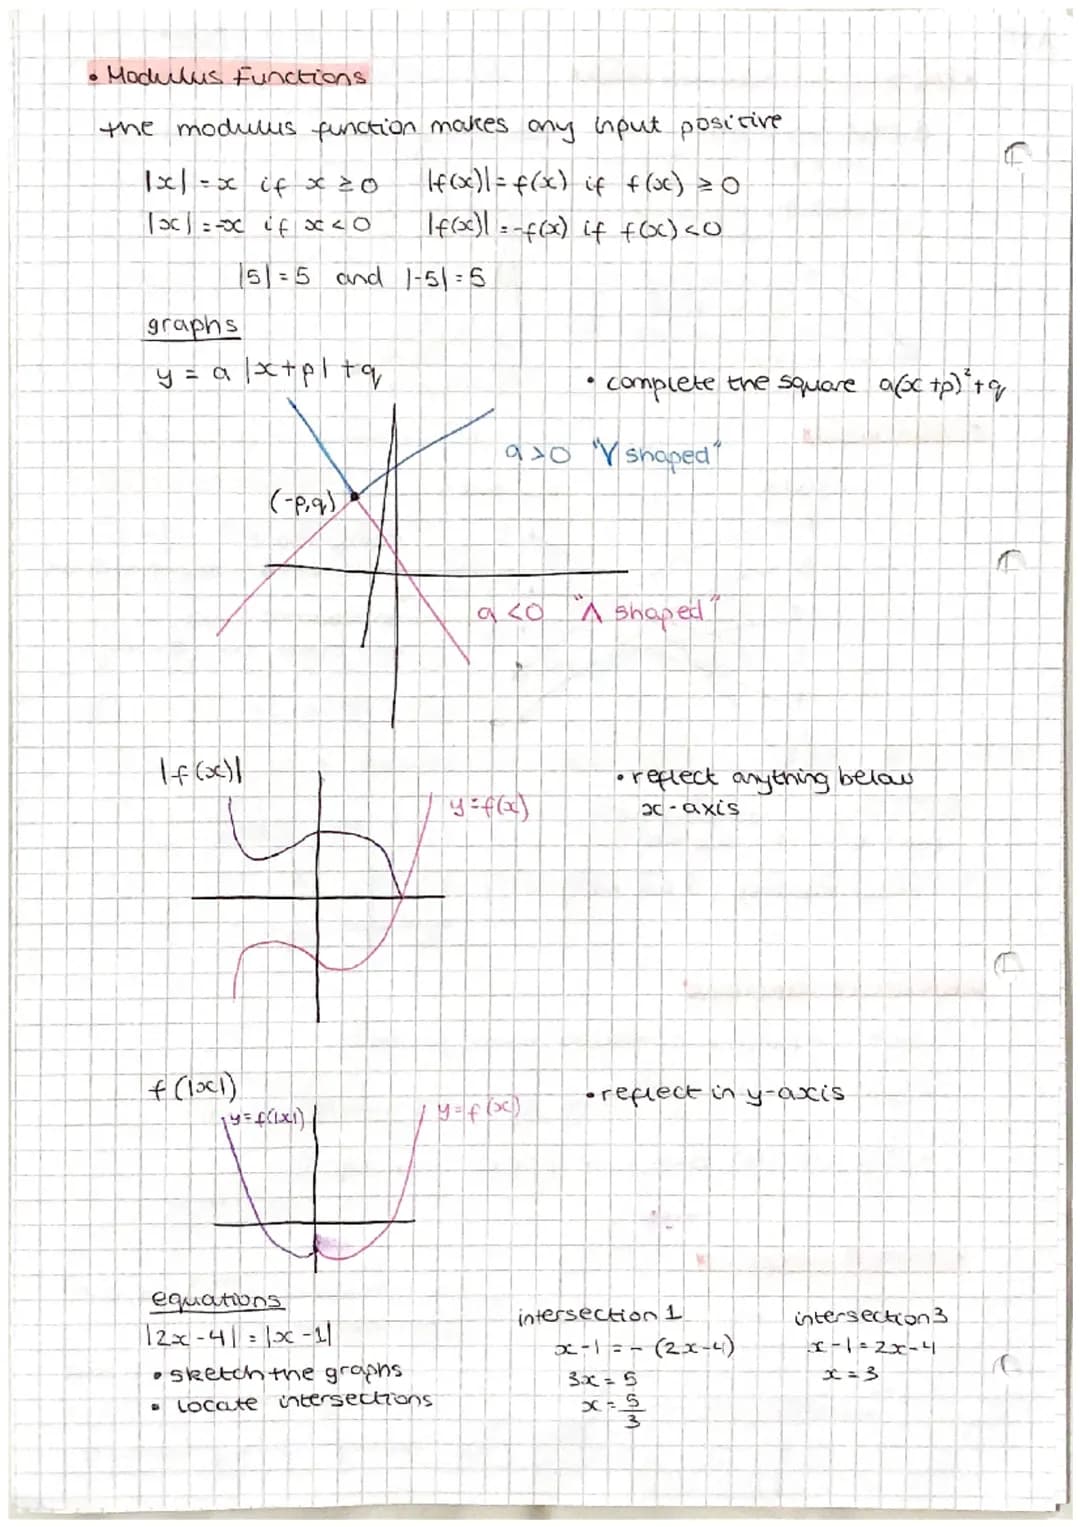 • Modulus Functions
the modulus function makes any input positive
|x| = x if x ≥ 0 |f(x)| = f(x) if f(x) ≥ 0
|x| = -x if x < 0 |f(x)| = -f(x) if f(x) < 0
|5| = 5 and |-5| = 5
graphs
y = a |x+p| + q
• complete the square a(x+p)²+q
a>0 "V shaped"
(-p,q)
a<0 "Λ shaped"
|f(x)|
y=f(x)
• reflect anything below
x-axis
f(|x|)
y=f(|x|)
y=f(x)
• reflect in y-axis
equations
|2x-4| = |x-1|
• sketch the graphs
• locate intersections
intersection 1
x-1 = -(2x-4)
3x = 5
x = 5/3
intersection 3
x-1 = 2x-4
x = 3